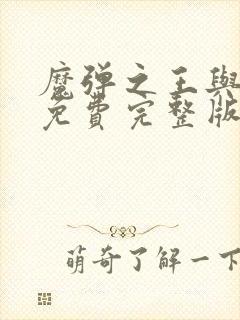 魔弹之王與
免費完整版
萌奇了解一下